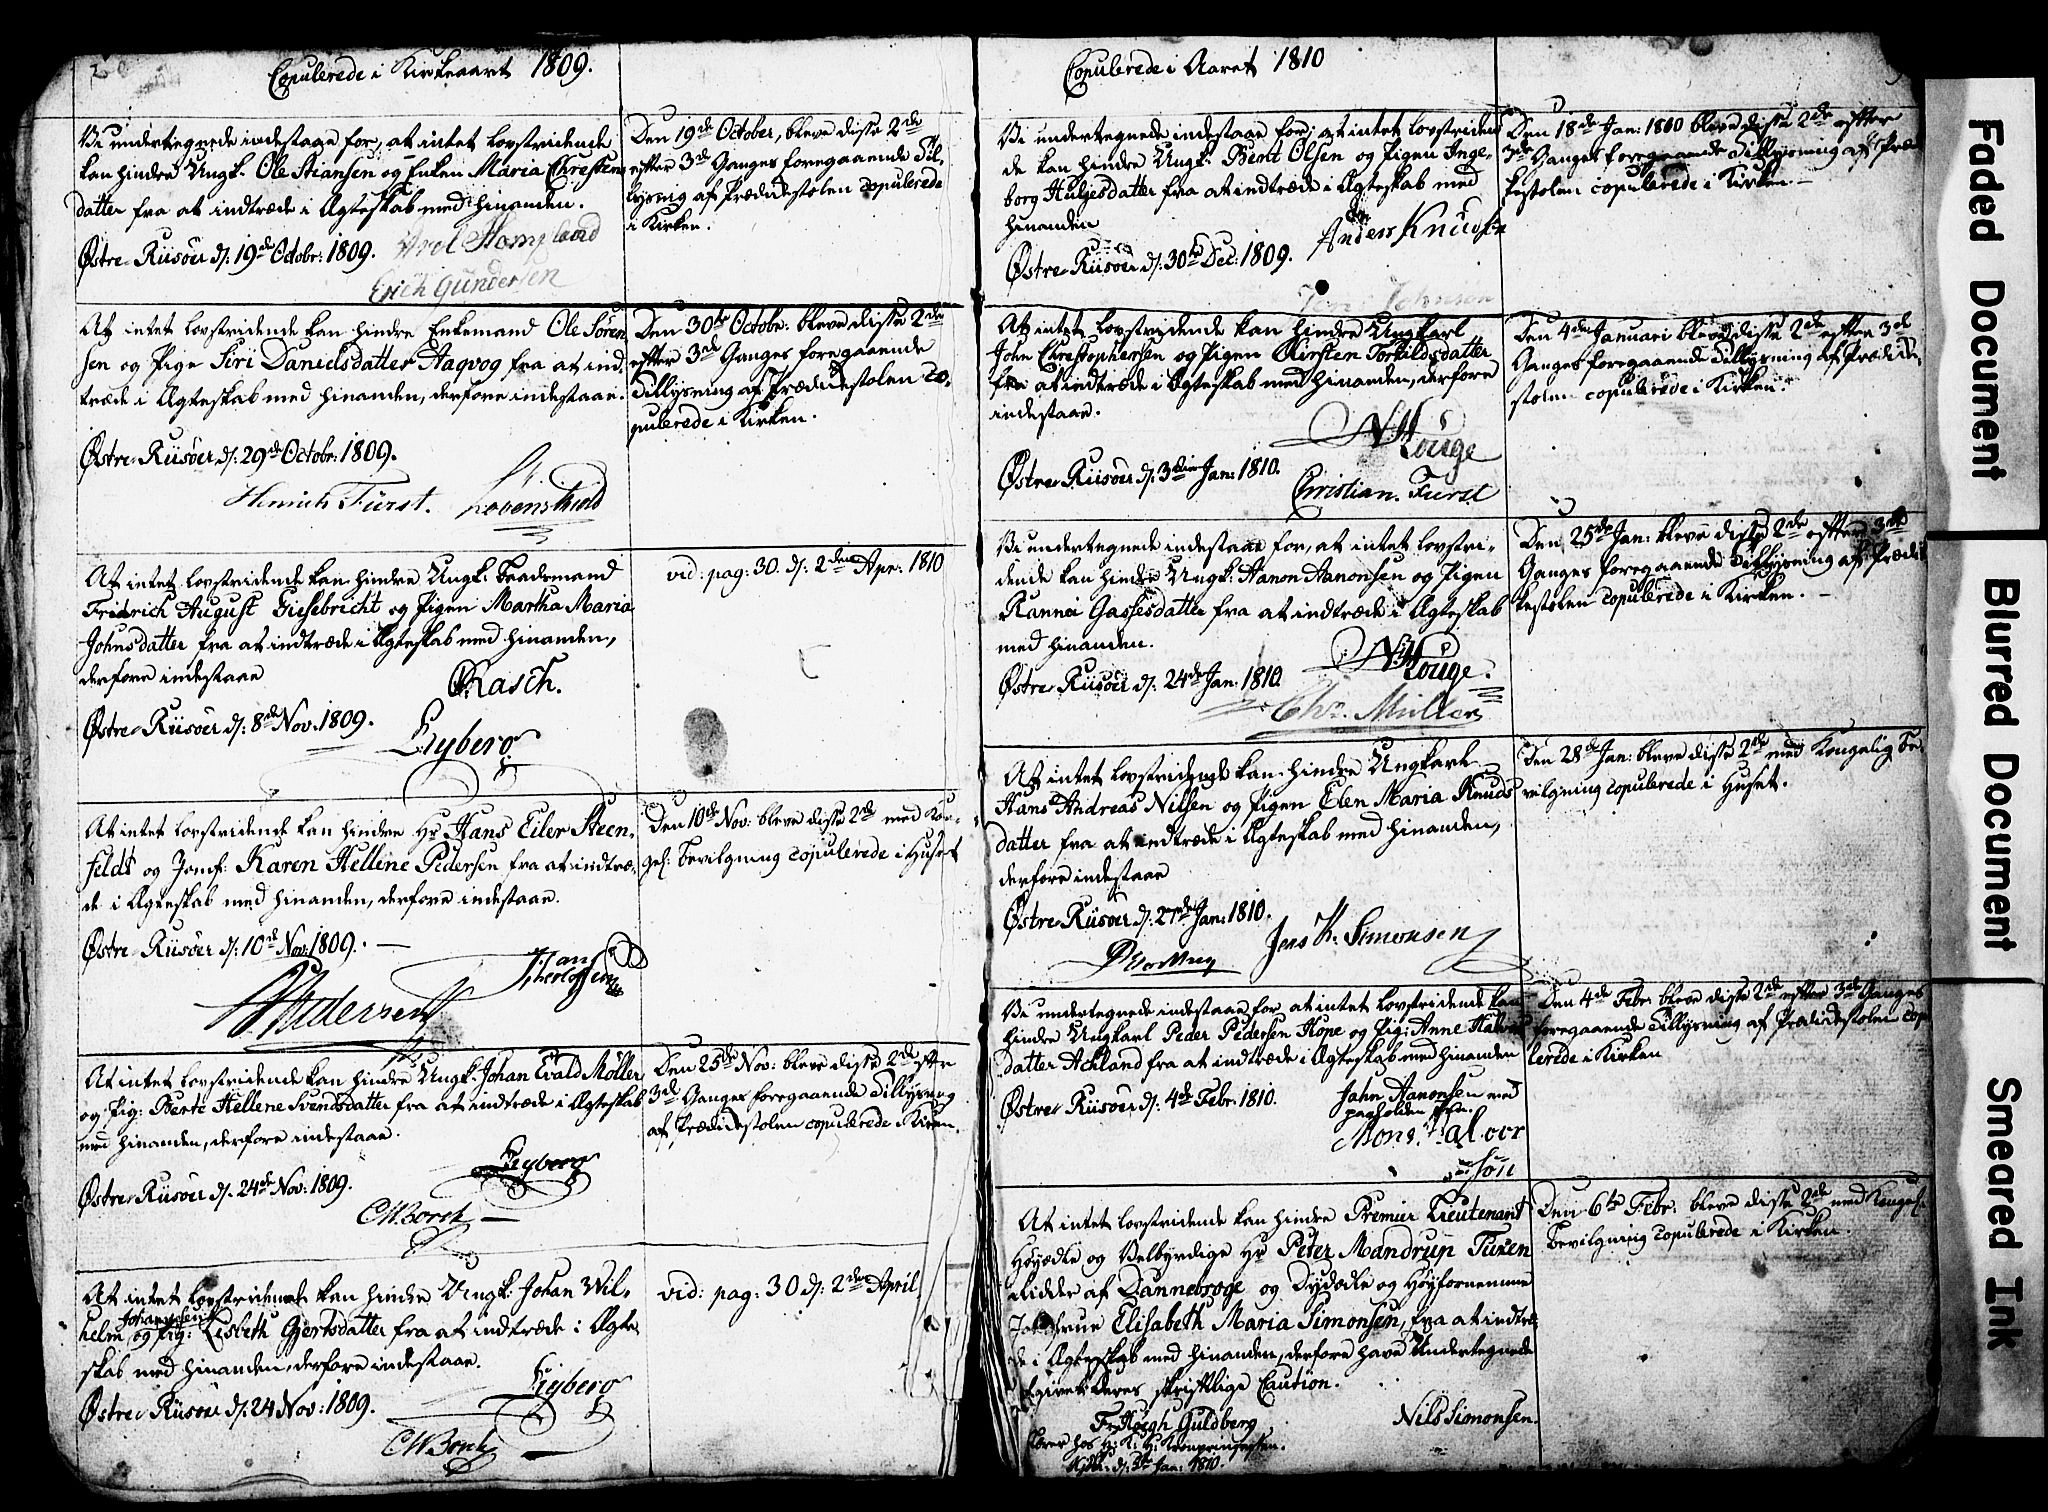 Copulerede i Kirkeaaret 1809.
Vi undertegnede indestaae for, at intet lovstridende
kan hindre Ungk. Ole Stiansen og Enken Maria Christens
datter fra at indtræde i Ægteskab med hinanden.
Østre Riisøer d: 19de Octobr: 1809.
Erich Gundersen
Den 19de October, bleve disse 2de
efter 3de Ganges foregaaende Til-
lysning af Prædikestolen copulerede
i Kirken.
At intet lovstridende kan hindre Enkemand Ole Sören
sen og Pige Siri Danielsdatter Aaqvog fra at ind
træde i Ægteskab med hinanden, derfore indestaae.
Østre Riisöer d: 29de Octobr: 1809.
Hinrich Fürst. Lövenskiold
Den 30te Octobr: bleve disse 2de
efter 3de Ganges foregaaende
Tillysning af Prædikestolen co-
pulerede i Kirken.
At intet lovstridende kan hindre Ungk. Baadsmand
Fridrich August Giesebricht og Pigen Martha Maria
Johnsdatter fra at indtræde i Ægteskab med hinanden,
derfore indestaae
Rasch.
Østre Riisöer d: 8de Nov: 1809.
Eyberg
vid: pag: 30. d: 2den Apr: 1810
At intet lovstridende kan hindre Hr Hans Eiler Steen
feldt og Jomf: Karen Hellene Pedersen fra at indtræ-
de i Ægteskab med hinanden, derfore indestaae.
Østre Riisøer d: 10de Nov: 1809.
Pedersen
Den 10de Nov: bleve disse 2de med Kon-
gel: Bevilgning copulerede i Huset
At intet lovstridende kan hindre Ungk: Johan Evald Møller
og Pig: Berte Hellene Svendsdatter fra at indtræde i Ægteskab
med hinanden, derfore indestaae.
Eyberg
Østre Riisøer d: 24de Nov: 1809.
C W Borch
Den 25de Nov: bleve disse 2de efter
3de Ganges foregaaende Tillysning
af Prædikestolen copulerede i Kirken.
At intet lovstridende kan hindre Ungk: Johan Wil-
Johannesen
helm og Pig: Lisbeth Gjertsdatter fra at indtræde i Ægte
skab med hinanden, derfore indestaae.
Eyberg
Østre Riisöer d: 24 Nov: 1809.
C W Borch
vid: pag: 30 d: 2den April
Copulerede i Aaret 1810
Vi undertegnede indestaae for, at intet lovstriden
de kan hindre Ungk: Bent Olsen og Pigen Inge-
borg Hulgesdatter fra at indtræde i Ægteskab med
hinanden
Anders Knudsen
Østre Riisöer d: 30te Dec: 1809.
Jens Johnsen
Den 18de Jan: 1810 bleve disse 2de efter
3de Ganges foregaaende Tillysning af Præd
kestolen copulerede i Kirken
At intet lovstridende kan hindre Ungkarl
John Christophersen og Pigen Kirsten Torkildsdatter
fra at indtræde i Ægteskab med hinanden, derfore
indestaae.
N H Houge
Østre Riisöer d: 3die Jan: 1810.
Christian Fürst
Den 4de Januari bleve disse 2de efter 3de
Ganges foregaaende Tillysning af Prædike
stolen copulerede i Kirken
Vi undertegnede indestaae for, at intet lovstri-
dende kan hindre Ungk: Aanon Aanonsen og Pigen
Rannei Gassesdatter fra at indtræde i Ægteskab
med hinanden.
N H Houge.
Østre Riisöer d: 24de Jan: 1810.
Chr. Müller
Den 25de Jan: bleve disse 2de efter 3de
Ganges foregaaende Tillysning af Prædi
kestolen copulerede i Kirken.
At intet lovstridende kan hindre Ungkarl
Hans Andreas Nilsen og Pigen Elen Maria Knuds
datter fra at indtræde i Ægteskab med hinanden,
derfore indestaae
Østre Riisöer d: 27de Jan: 1810.
Jens K. Simonsen
Den 28de Jan: bleve disse 2de med Kongelig Be-
vilgning copulerede i Huset.
Vi undertegnede indestaae for at intet lovstridende kan
hindre Ungkarl Peder Pedersen Hope og Pig: Anne Halvors
datter Achland fra at indtræde i Ægteskab med hinanden
Østre Riisöer d: 4de Febr: 1810.
Jahn Aanonsen med
paaholden Pen.
Mons Halvor
sön
Den 4de Febr: bleve disse 2de efter 3de Ganges
foregaaende Tillysning af Prædikestolen copu
lerede i Kirken
At intet lovstridende kan hindre Premier Lieutenant
Høyædle og Velbyrdige Hr Peter Mandrup Tuxen
Ridder af Dannebroge og Dydædle og Høyfornemme
Jomfrue Elisabeth Maria Simonsen, fra at indtræ
de i Ægteskab med hinanden, derfore have Undertegnede
givet deres skriftlige Caution.
Fr. Høegh Guldberg
Nils Simonsen.
Lærer hos H: K: H: Kronprinsessen.
Kbh: d: 3te Jan: 1810.
Den 6te Febr: bleve disse 2de med Kongel:
Bevilgning copulerede i Kirken
Faded Document
Blurred Document
Smeared Ink